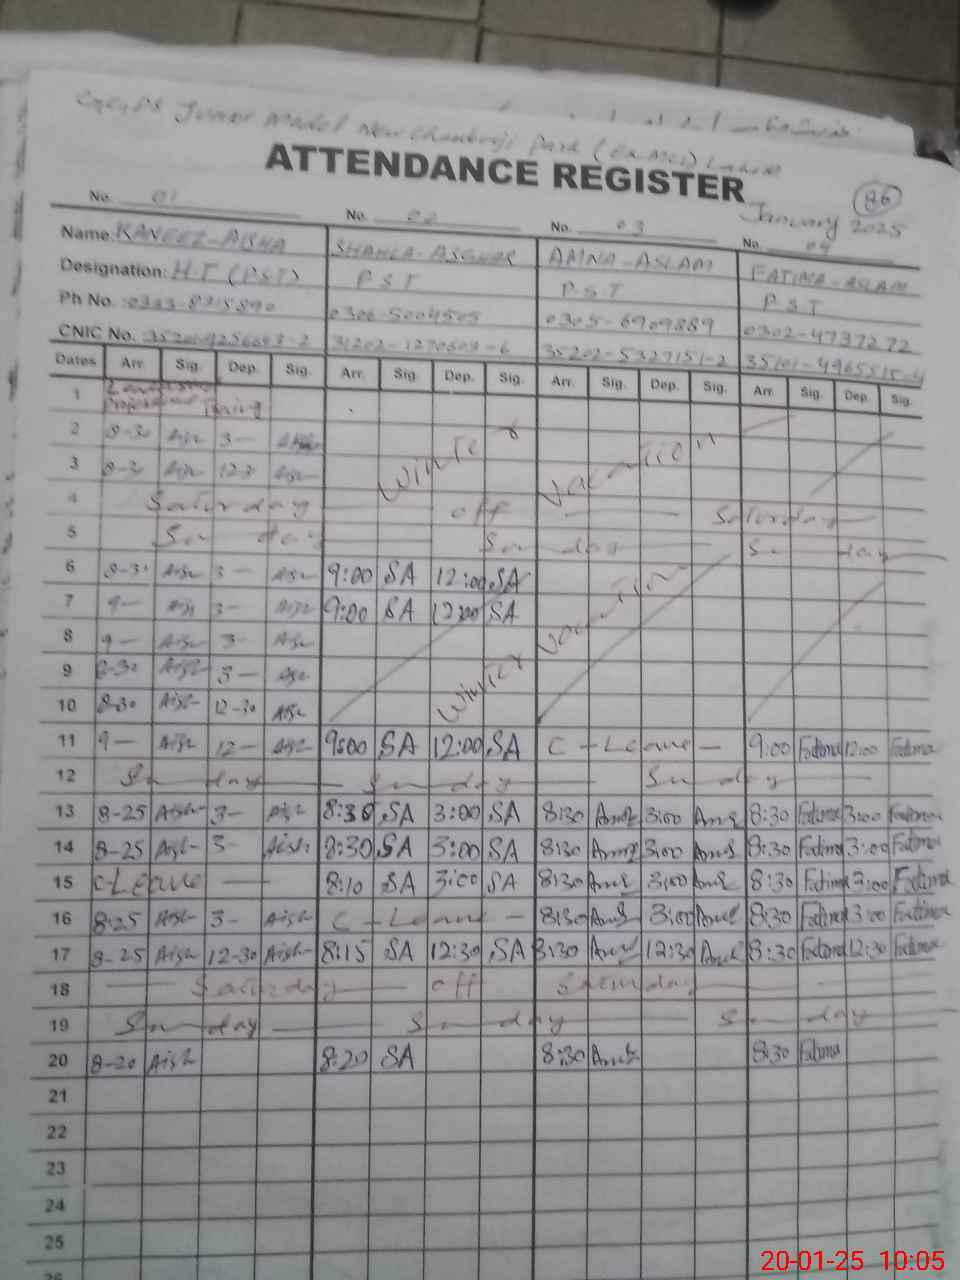 Junior Model New Chauburji Park (Ex.MCL) Lahore
ATTENDANCE REGISTER
86
January 2025
No. 01 No. 02 No. 03 No. 04
Name: KANEEZ-AISHA SHAHLA-ASGHAR AMNA-ASLAM FATIMA-ASLAM
Designation: H.T (P.S.T) P S T P.S.T P.S T
Ph No. :0333-8315890 0306-5004505 0305-6909889 0302-4737272
CNIC No. 31202-1270609-6 35202-5327151-2 35101-4965515-4
Dates Arr. Sig. Dep. Sig. Arr. Sig. Dep. Sig. Arr. Sig. Dep. Sig. Arr. Sig. Dep. Sig.
1
2 8-30 Aish 3- Winter Vacation
3 8-3 Aish 12-3 Aish
4 Saturday off Saturday
5 Sunday Sunday Sunday
6 8-3 Aish 3- Aish 9:00 SA 12:00 SA
7 9- Aish 3- Aish 9:00 SA 12:00 SA Winter Vacation
8 9- Aish 3- Aish
9 8-30 Aish 3- Aish
10 8-30 Aish 12-30 Aish
11 9- Aish 12- Aish 9:00 SA 12:00 SA C-Leave- 9:00 Fatima 12:00 Fatima
12 Sunday Sunday Sunday
13 8-25 Aish 3- Aish 8:30 SA 3:00 SA 8:30 Amna 3:00 Amna 8:30 Fatima 3:00 Fatima
14 8-25 Aish 3- Aish 8:30 SA 3:00 SA 8:30 Amna 3:00 Amna 8:30 Fatima 3:00 Fatima
15 C-Leave 8:10 SA 3:00 SA 8:30 Amna 3:00 Amna 8:30 Fatima 3:00 Fatima
16 8:25 Aish 3- Aish C-Leave- 8:30 Amna 3:00 Amna 8:30 Fatima 3:00 Fatima
17 8-25 Aish 12-30 Aish 8:15 SA 12:30 SA 8:30 Amna 12:30 Amna 8:30 Fatima 12:30 Fatima
18 Saturday off Saturday
19 Sunday Sunday Sunday
20 8-20 Aish 8:20 SA 8:30 Amna 8:30 Fatima
21
22
23
24
25
26
20-01-25 10:05